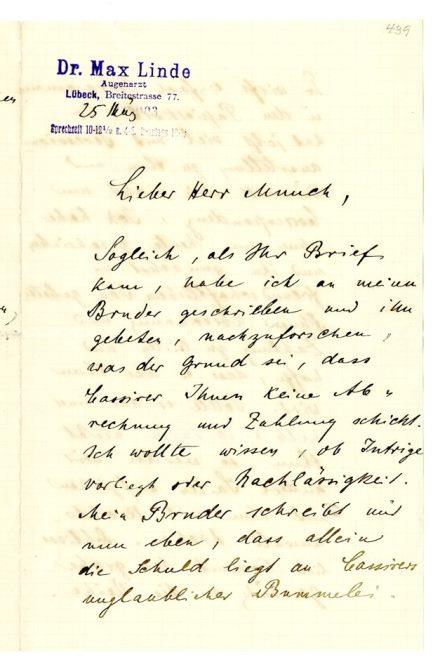 439
Dr. Max Linde
Augenarzt
Lübeck, Breitestrasse 77.
25 März
Sprechzeit 10-12½ u.
Lieber Herr Munch,
Sogleich, als Ihr Brief
kam, habe ich an meinen
Bruder geschrieben und ihn
gebeten, nachzuforschen,
was der Grund sei, dass
Cassirer Ihnen keine Ab-
rechnung und Zahlung schickt.
Ich wollte wissen, ob Intrige
vorliegt oder Nachlässigkeit.
Mein Bruder schreibt mir
nun eben, dass allein
die Schuld liegt an Cassirers
unglaublicher Bummelei.